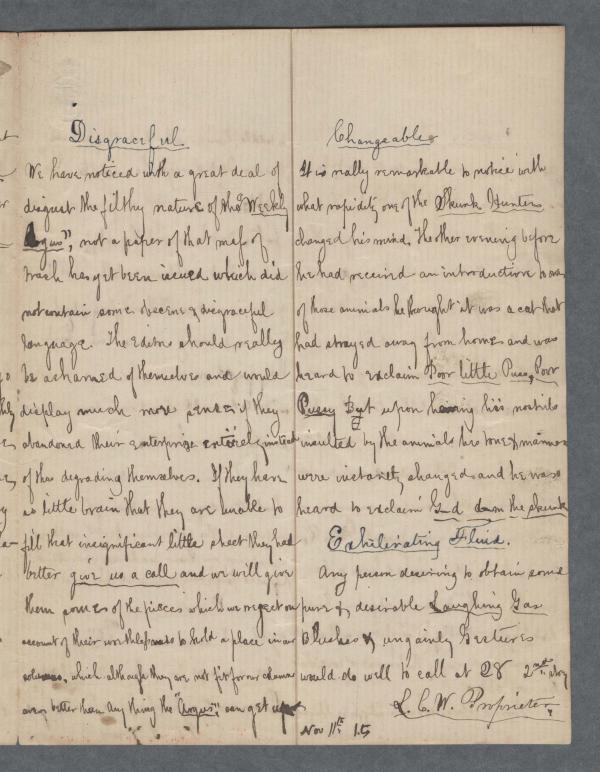 Disgraceful.
We have noticed with a great deal of
disgust the filthy nature of the "Weekly
Argus", not a paper of that mass of
trash has yet been issued which did
not contain some obscene & disgraceful
language. The Editors should really
be ashamed of themselves and would
display much more sense if they
abandoned their enterprize entirely instead
of thus degrading themselves. If they have
so little brain that they are unable to
fill that insignificant little sheet they had
better give us a call and we will give
them some of the pieces which we reject on
account of their worthlessness to hold a place in our
columns, which although they are not fit for our columns
are better than any thing the "Argus" can get up
Changeable
It is really remarkable to notice with
what rapidity one of the Skunk Hunters
changed his mind. The other evening before
he had received an introduction to one
of those animals he thought it was a cat that
had strayed away from home and was
heard to exclaim Poor little Puss, Poor
Pussy But upon having his nostrils
insulted by the animals his tone & manner
were instantly changed and he was
heard to exclaim G—d dam the skunk
Exhilirating Fluid.
Any person desiring to obtain some
pure & desirable Laughing Gas
Blushes & ungainly Gestures
would do well to call at 28 2nd story
L. C. W. Proprietor
Nov 11th